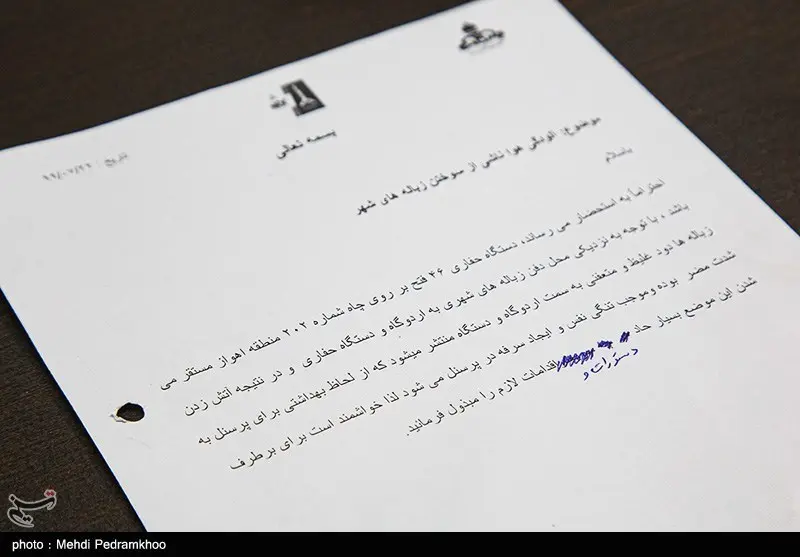 بسمه تعالی
تاریخ
موضوع: آلودگی هوا ناشی از سوختن زباله های شهر
باسلام
احتراماً به استحضار می رساند، دستگاه حفاری ۴۶ فتح بر روی چاه شماره ۲۰۲ منطقه اهواز مستقر می
باشد ، با توجه به نزدیکی محل دفن زباله های شهری به اردوگاه و دستگاه حفاری و در نتیجه آتش زدن
زباله ها دود غلیظ و متعفنی به سمت اردوگاه و دستگاه منتشر میشود که از لحاظ بهداشتی برای پرسنل به
شدت مضر بوده وموجب تنگی نفس و ایجاد سرفه در پرسنل می شود لذا خواشمند است برای برطرف
شدن این موضع بسیار حاد اقدامات لازم را مبذول فرمائید.
دستورات و
تسنیم
photo : Mehdi Pedramkhoo